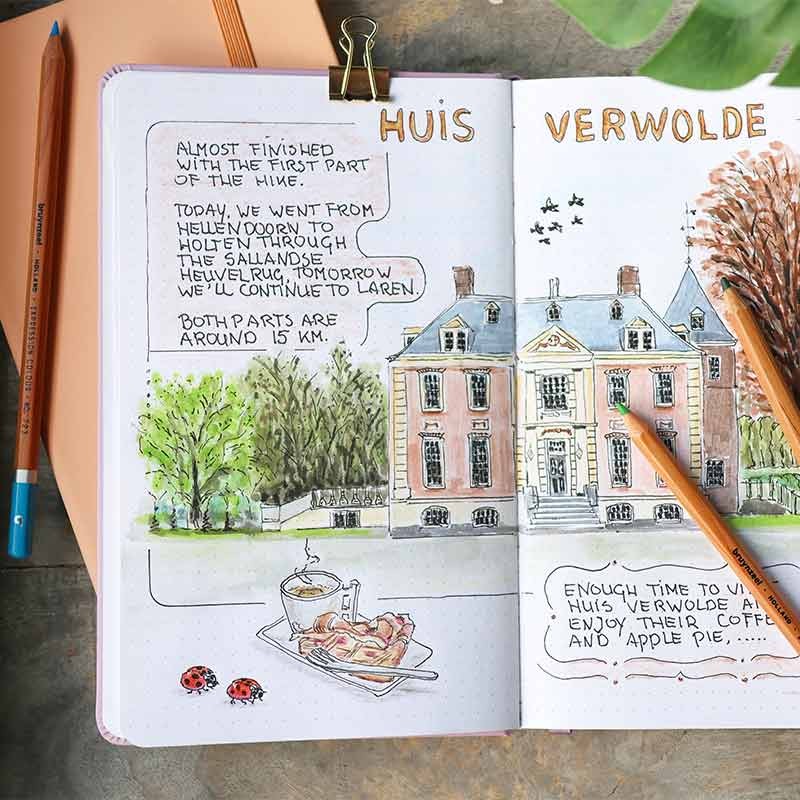 HUIS VERWOLDE
ALMOST FINISHED
WITH THE FIRST PART
OF THE HIKE.
TODAY, WE WENT FROM
HELLENDOORN TO
HOLTEN THROUGH
THE SALLANDSE
HEUVELRUG, TOMORROW
WE'LL CONTINUE TO LAREN.
BOTH PARTS ARE
AROUND 15 KM.
ENOUGH TIME TO
HUIS VERWOLDE
ENJOY THEIR
AND APPLE PIE, .....
bruynzeel • HOLLAND • EXPRESSION COLOUR
bruynzeel • HOLLAND